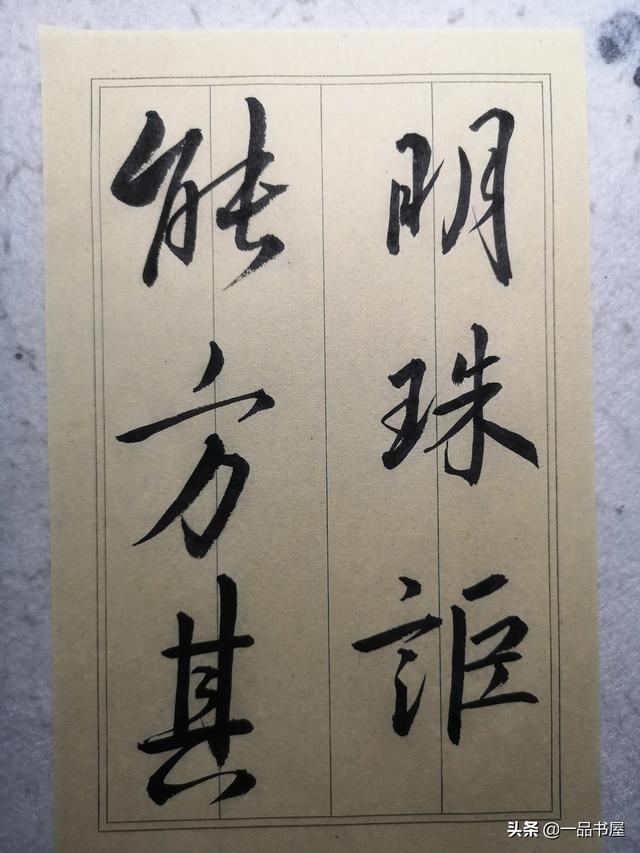 明珠詎
能方其
头条 @一品书屋